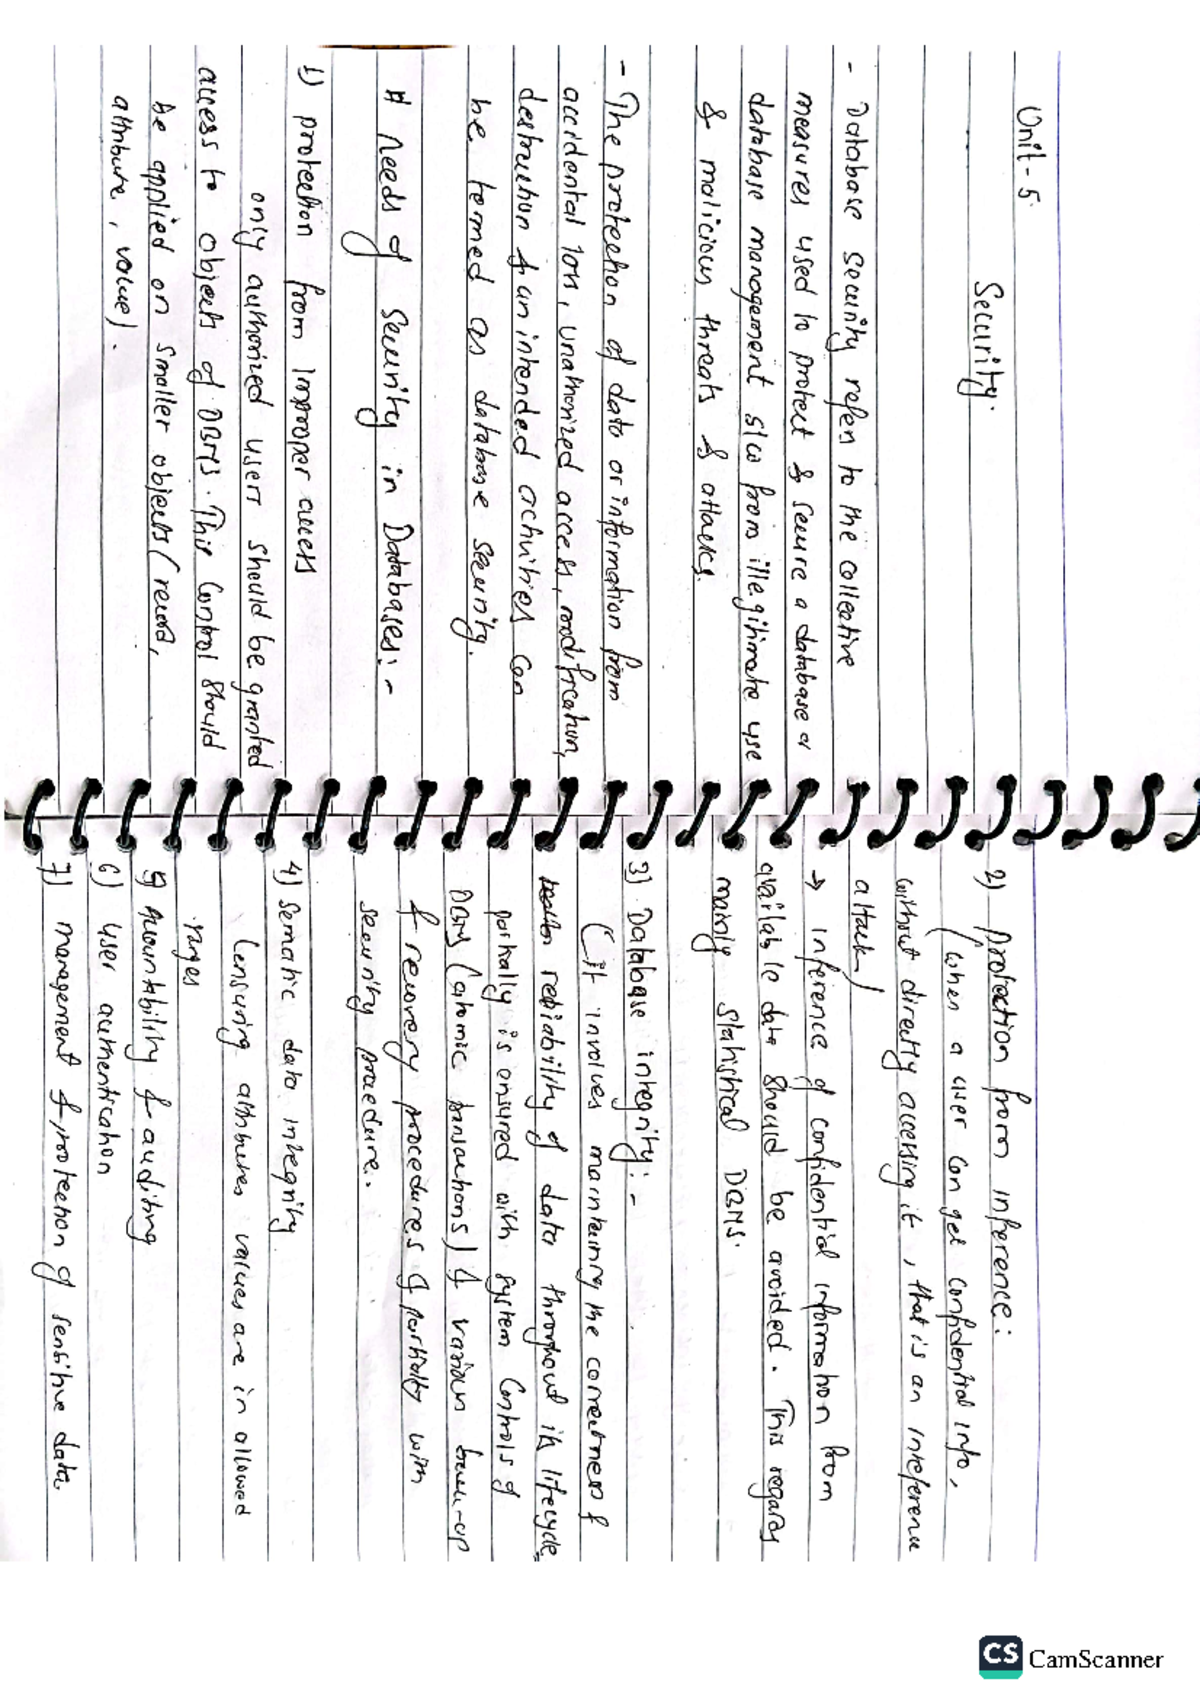 Unit-5
Security.
- Database security refers to the collective
measures used to protect & secure a database or
database management s/w from illegitimate use
& malicious threats & attacks.
- The protection of data or information from
accidental loss, unathorized access, modification,
destruction & unintended activities can
be termed as database security.
# Needs of Security in Databases:-
1) protection from Improper access
only authorized users should be granted
access to objects of DBMS. This Control should
be applied on smaller objects (record,
attribute, value).
2) protection from inference:
(when a user can get confidential info,
without directly accessing it, that is an
attack)
→ inference of confidential information from
available data should be avoided. This regards
mainly statistical DBMS.
3) Database integrity:-
(it involves maintaining the correctness &
reliability of data throughout its lifecycle.
partially is ensured with system Controls of
DBMS (atomic transactions) & various back-up
& recovery procedures & partially with
security procedure..
4) Sematic data integrity
(ensuring attributes values are in allowed
ranges
5) Accountability & auditing
6) user authentication
7) management & protection of sensitive data.
CS CamScanner